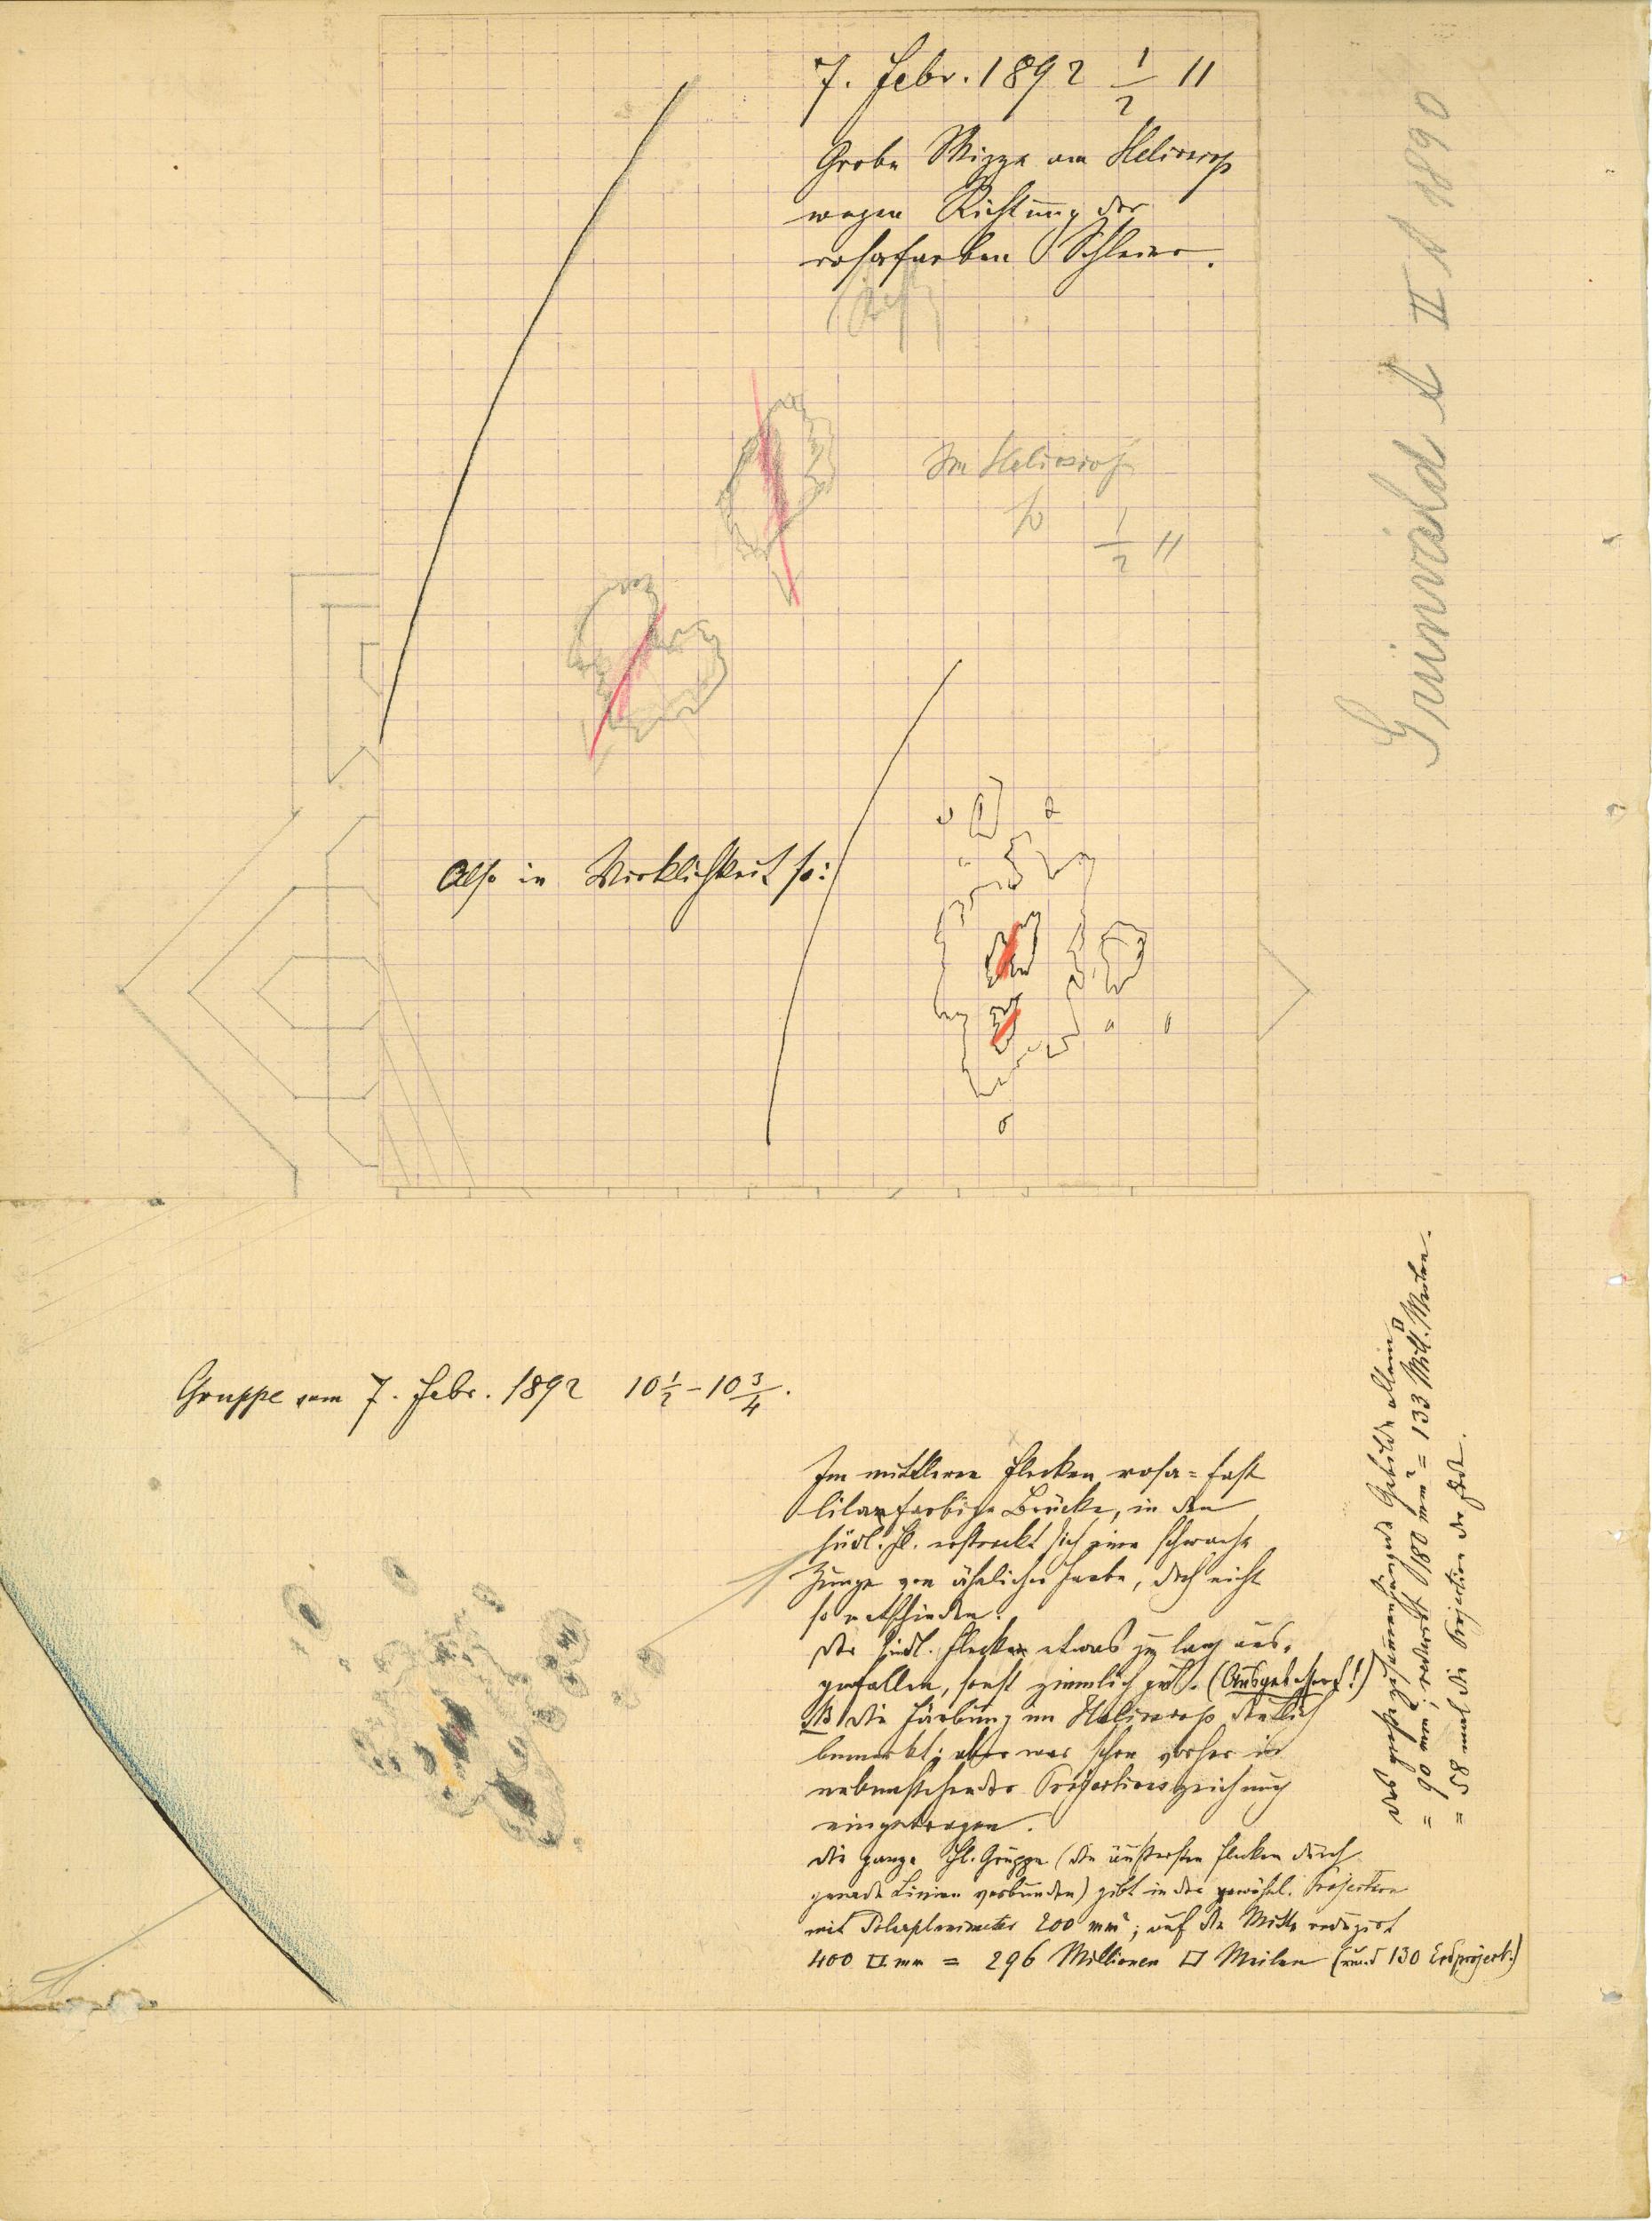 7. Febr. 1892 1/2 11
Grobe Skizze am Helioscop
wegen Richtung der
rosafarben Schleier.
Im Helioscop
so 1/2 11
Also in Wirklichkeit so:
Grünwald A II A 1890
Gruppe vom 7. Febr. 1892 10 1/2 - 10 3/4.
Im mittleren Flecken rosa= fast
lilafarbige Brücke, in den
südl. Fl. erstreckt sich eine schwache
Zunge von ähnlicher Farbe, doch nicht
so entschieden.
Der südl. Flecken etwas zu lang aus-
gefallen, sonst ziemlich gut. (Ausgebessert!)
NB die Färbung im Helioscop deutlich
bemerkt; aber war schon vorher in
nebenstehender Projectionszeichnung
eingetragen.
Die ganze Fl. Gruppe (die äußersten Flecken durch
gerade Linien verbunden) gibt in der gewöhnl. Projection
mit Polarplanimeter 200 mm²; auf die Mitte reduzirt
400 □ mm = 296 Millionen □ Meilen (rund 130 Erdproject.)
Das große zusammenhängende Gebilde allein
= 90 mm²; reduzirt 180 mm² = 133 Mill. □ Meilen.
= 58 mal die Projection der Erde.